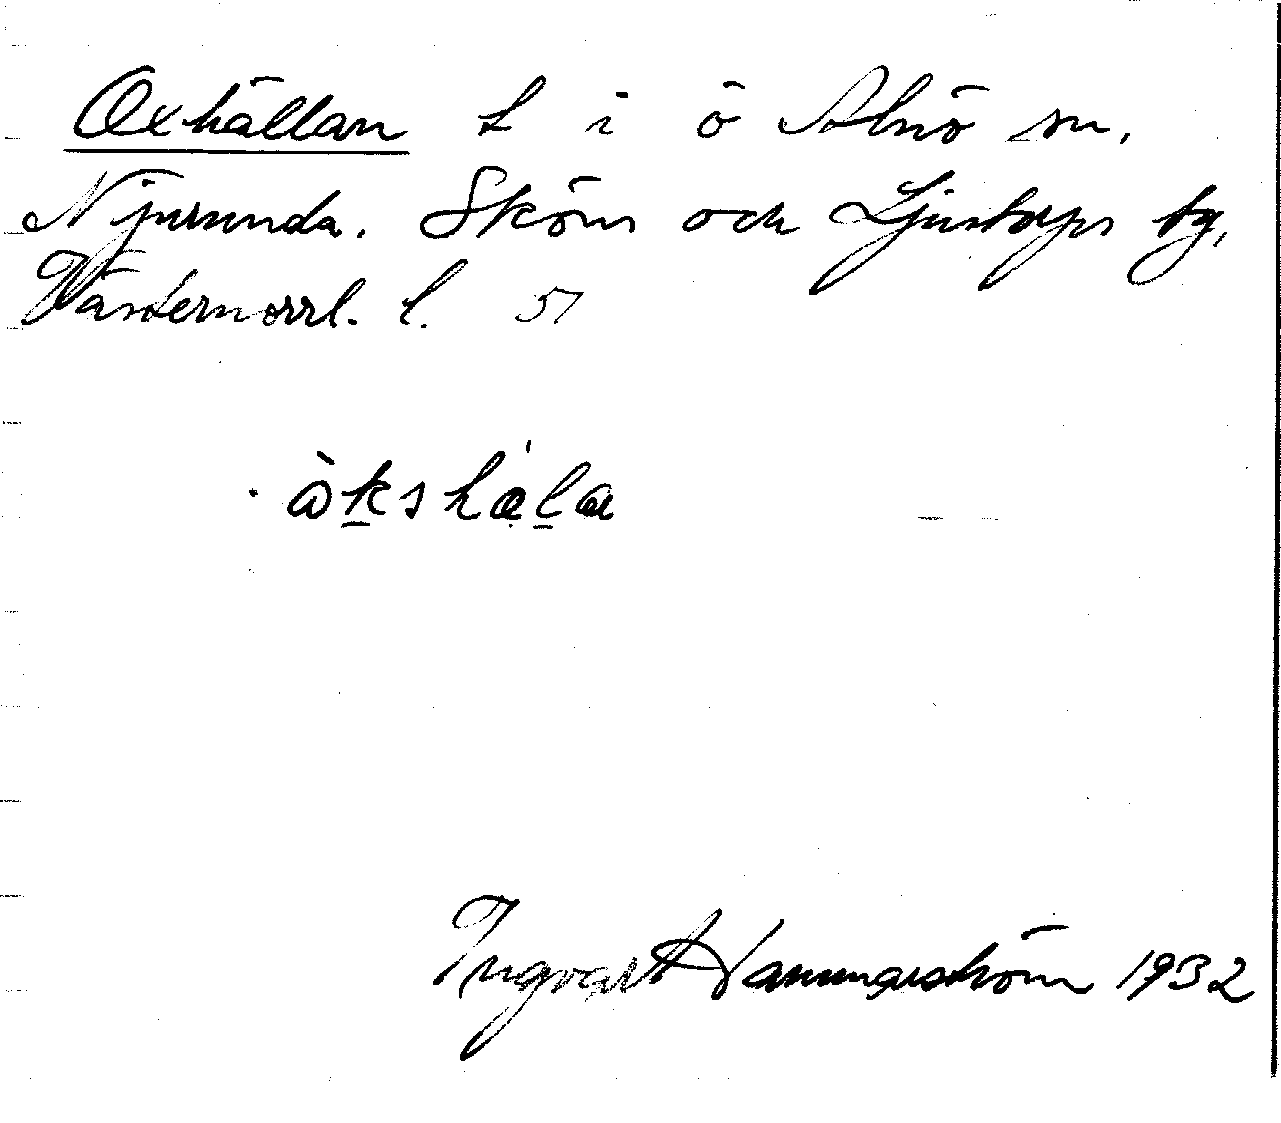 Oxhällan t i ö Alnö sn,
Njurunda, Sköns och Ljustorps tg,
Västernorrl. l. 51
ὰk̲shǽ̣l̲a
Ingvart Hammarström 1932